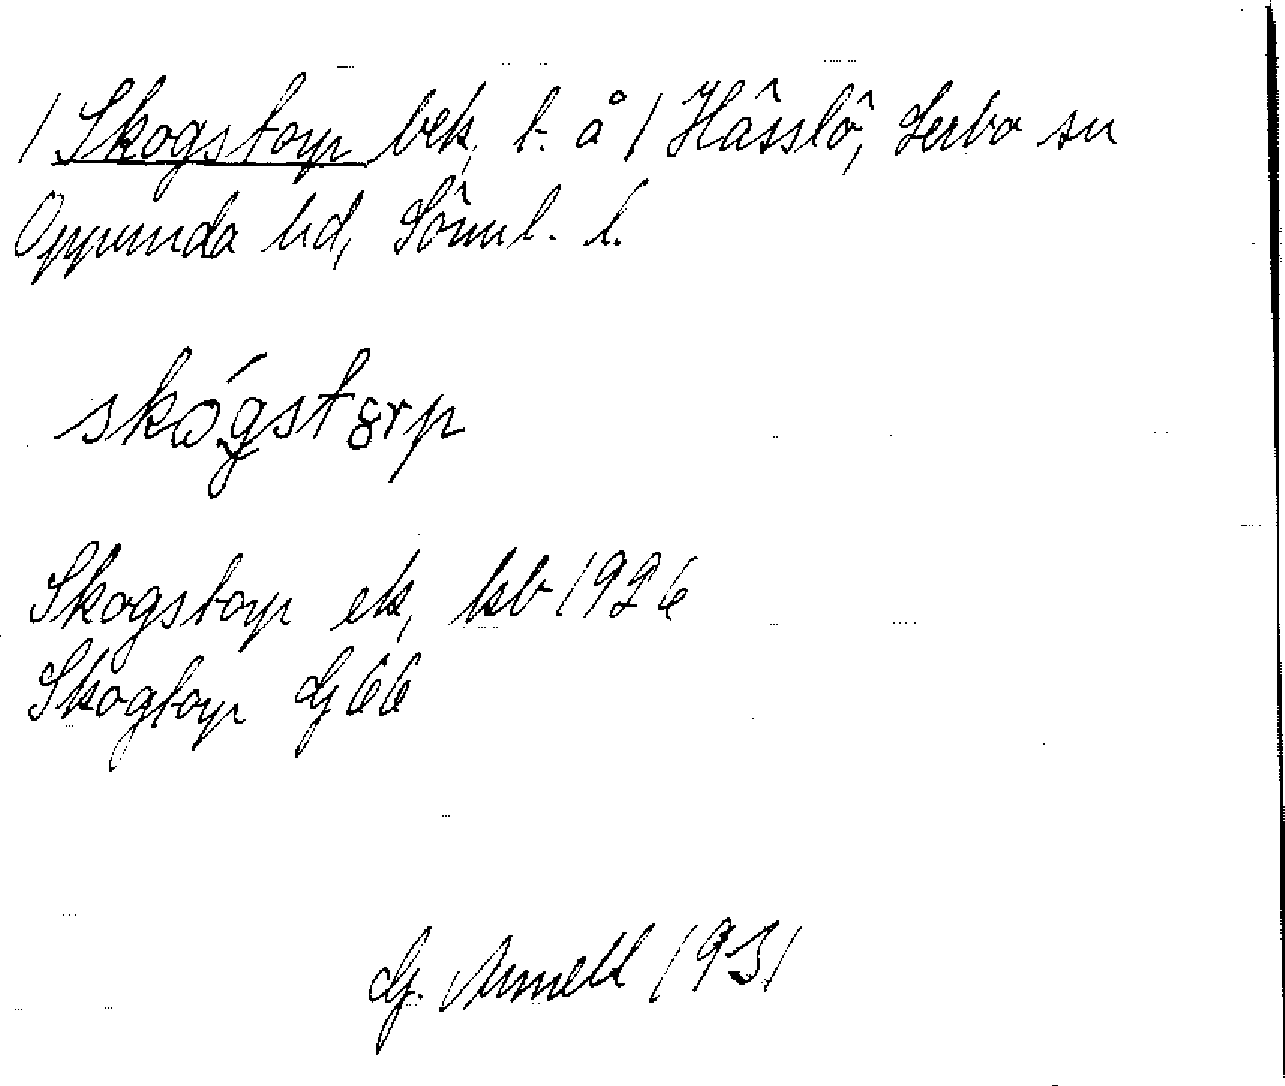 1 Skogstorp bek, t. å 1 Hässlö, Lerbo sn
Oppunda hd, Söml. l.
skógstorp
Skogstorp ek, kb 1926
Skogtorp G 66
G. Arnell 1931